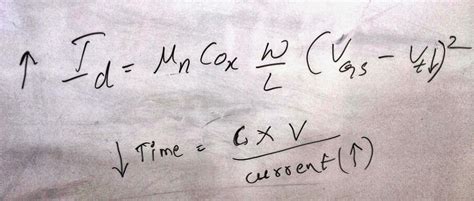 ↑ I_d = μ_n Cox W/L (V_gs - V_t↓)^2
↓ Time = C X V / current (↑)